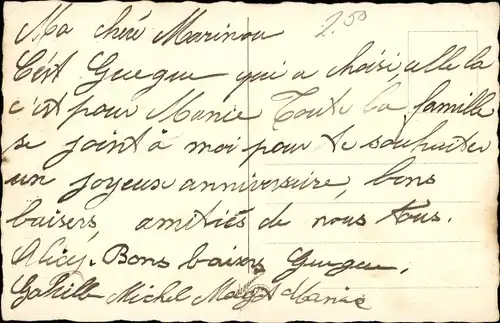 Ma cheré Marinou 2.50
C'est Guegue qui a choisi, elle la
c'est pour Manie Toute la famille
se joint à moi pour te souhaiter
un joyeux anniversaire, bons
baisers, amitiés de nous tous.
Bons baisers Guegue,
Michel Manie